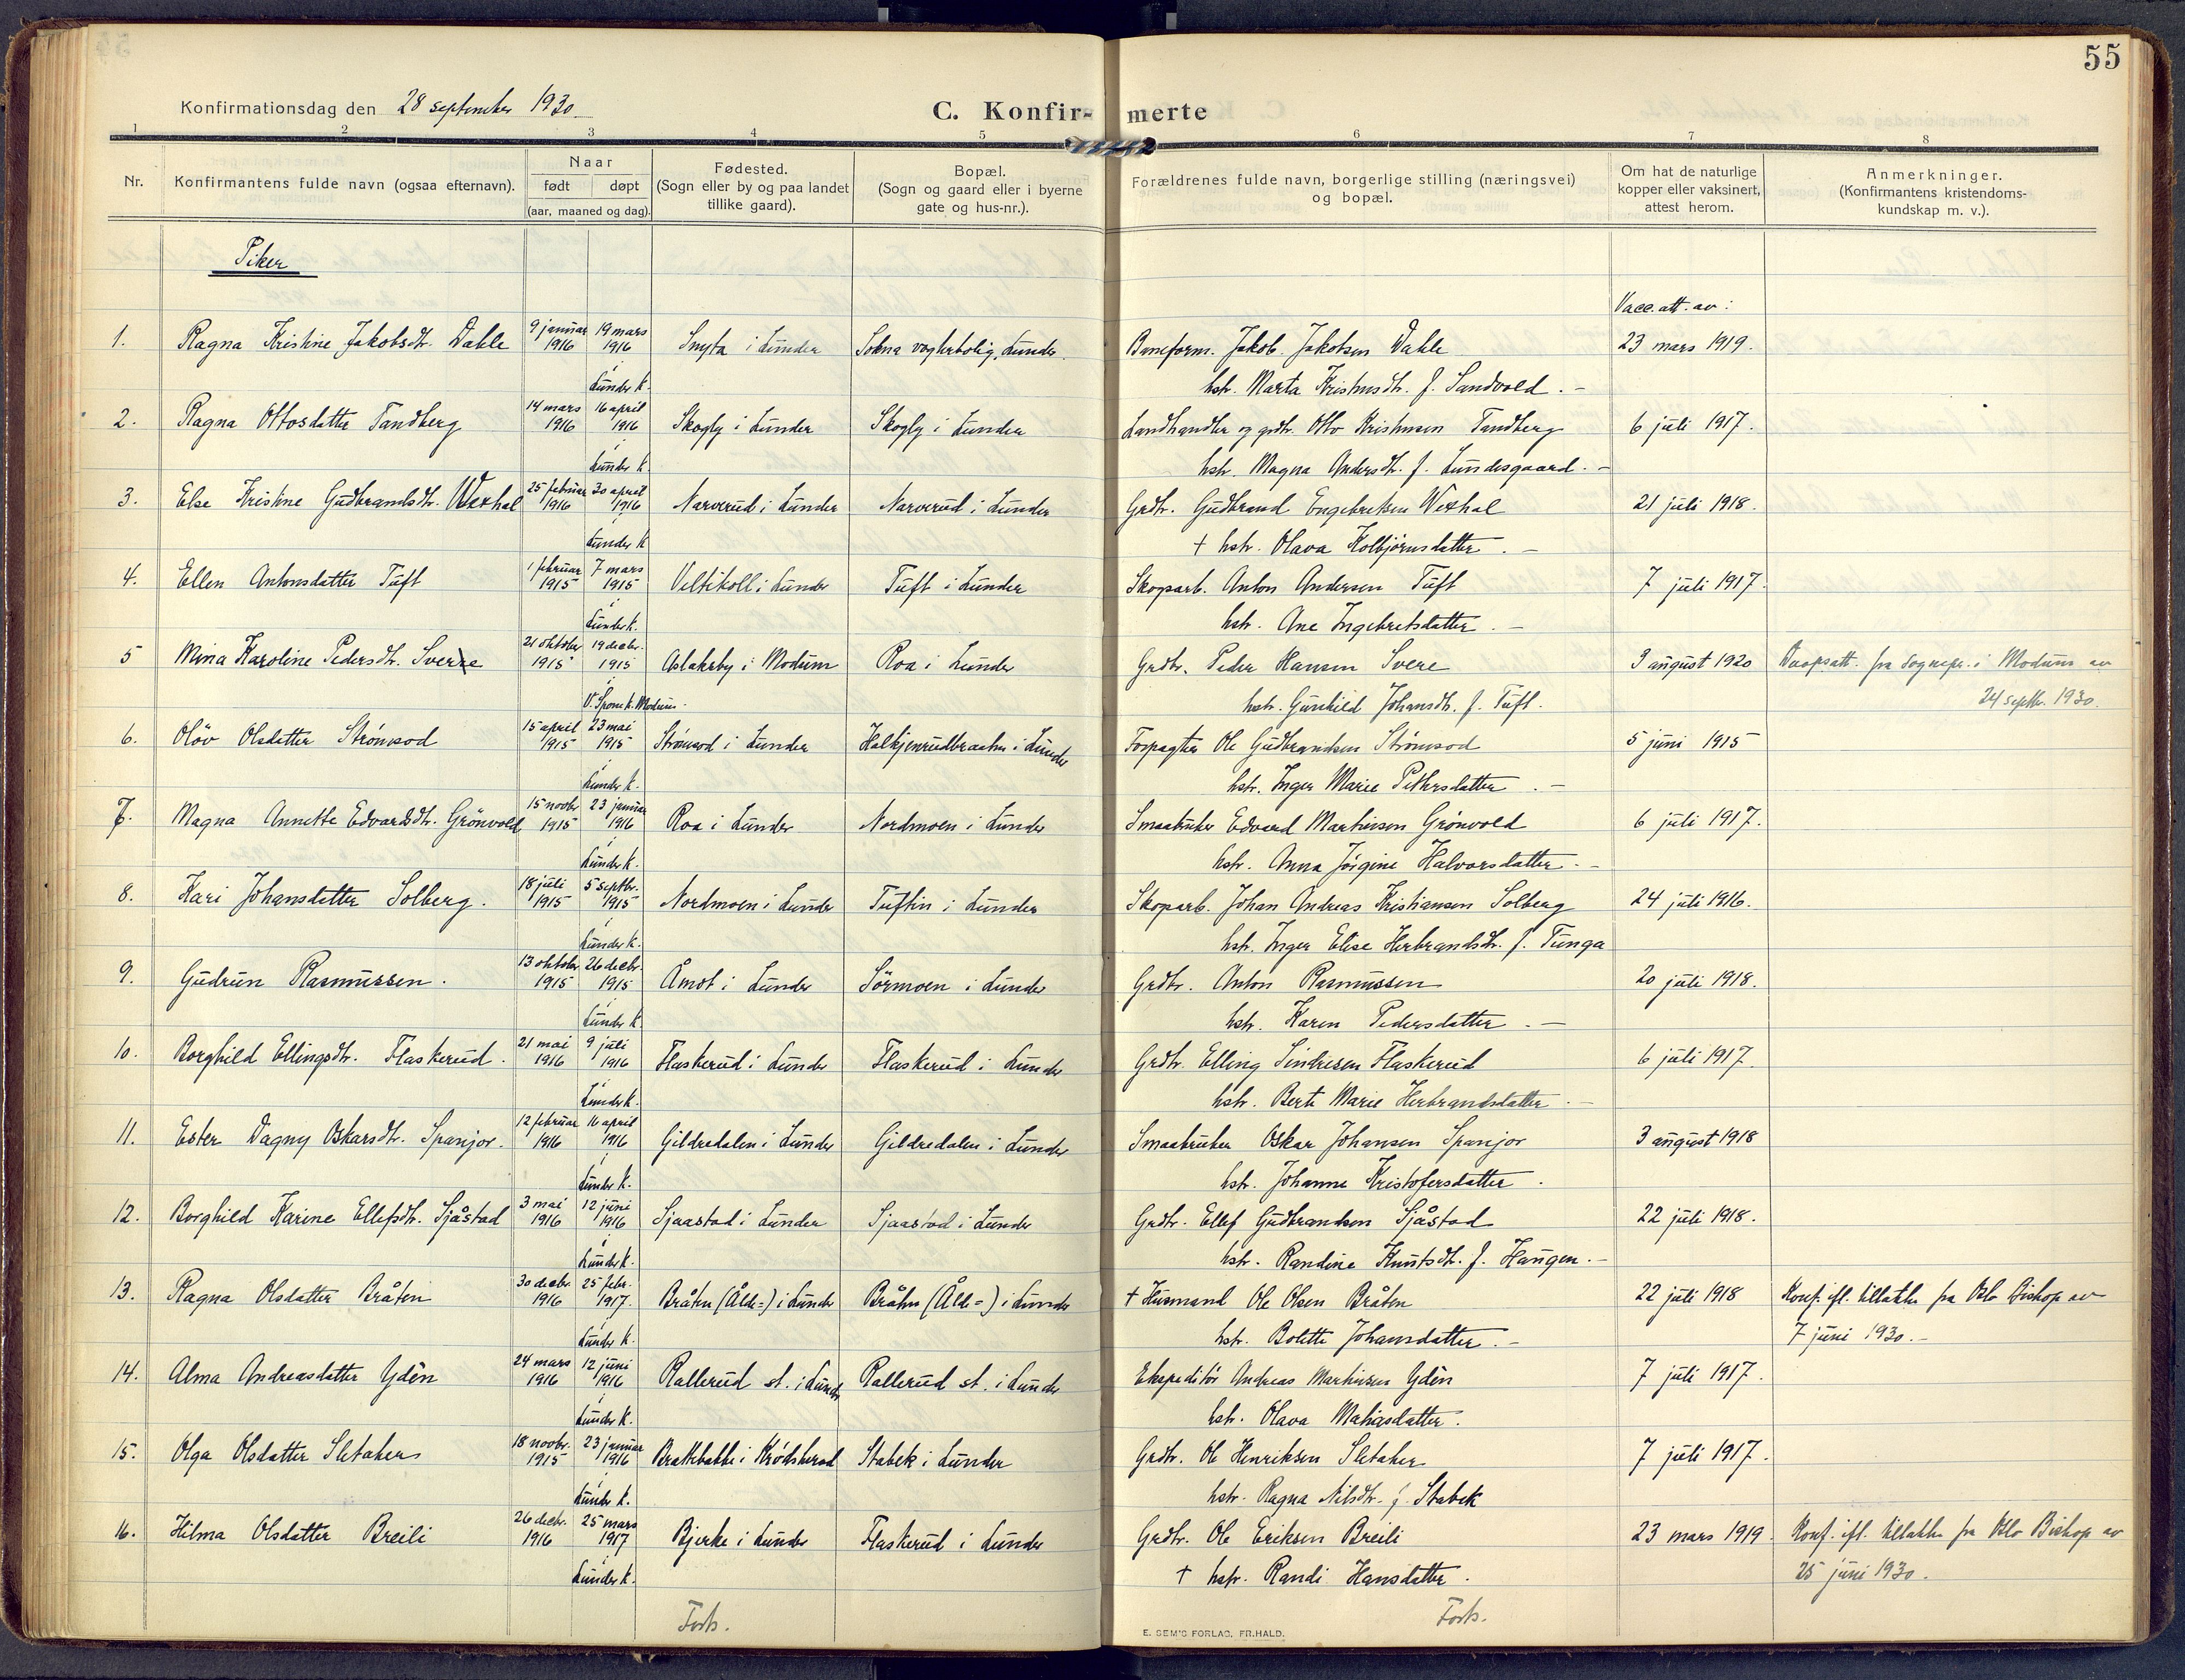 55
Konfirmationsdag den 28 september 1930
C. Konfir- merte
1 2 3 4 5 6 7 8
Nr.
Konfirmantens fulde navn (ogsaa efternavn).
Naar
født døpt
(aar, maaned og dag).
Fødested.
(Sogn eller by og paa landet
tillike gaard).
Bopæl.
(Sogn og gaard eller i byerne
gate og hus-nr.).
Forældrenes fulde navn, borgerlige stilling (næringsvei)
og bopæl.
Om hat de naturlige
kopper eller vaksinert,
attest herom.
Anmerkninger.
(Konfirmantens kristendoms-
kundskap m. v.).
Piker
Vacc. att. av:
1. Ragna Kristine Jakobsdtr. Dahle 9 januar 1916 19 mars 1916 Smyta i Lunder Sokna vogterbolig, Lunder. Baneform. Jakob Jakobsen Dahle 23 mars 1919.
i Lunder k. hstr. Marta Kristinesdtr. f. Sandvold.-
2. Ragna Ottosdatter Tandberg 14 mars 1916 16 april 1916 Skogly i Lunder Skogly i Lunder Landhandler og grdbr. Otto Kristensen Tandberg 6 juli 1917.
i Lunder k. hstr. Magna Andersdtr. f. Lundesgaard.-
3. Else Kristine Gudbrandsdtr. Wexhal 25 februar 1916 30 april 1916 Narverud i Lunder Narverud i Lunder Grdbr. Gudbrand Engebretsen Wexhal 21 juli 1918.
i Lunder k † hstr. Olava Kolbjørnsdatter.-
4. Ellen Antonsdatter Tuft 1 februar 1915 7 mars 1915 Veltikoll i Lunder Tuft i Lunder Skogsarb. Anton Andersen Tuft 7 juli 1917.
i Lunder k. hstr. Ane Ingebretsdatter.-
5 Mina Karoline Pedersdtr. Svere 21 oktober 1915 19 decbr. 1915 Aslaksby i Modum Roa i Lunder Grdbr. Peder Hansen Svere 3 august 1920 Daapsatt. fra Sognepr. i Modum av
i V. Spone k. Modum. hstr. Gunhild Johansdtr. f. Tuft. 24 septbr. 1930.
6. Olöv Olsdatter Strömsod 15 april 1915 23 mai 1915 Strömsod i Lunder Halkjenrudbraaten i Lunder Forpagter Ole Gudbrandsen Strömsod 5 juni 1915
i Lunder k. hstr. Inger Marie Petersdatter.-
7. Magna Annette Edvardsdtr. Grönvold 15 novbr. 1915 23 januar 1916 Roa i Lunder Nordmoen i Lunder Smaabruker Edvard Martinsen Grönvold 6 juli 1917.
i Lunder k. hstr. Anna Jörgine Halvorsdatter.-
8. Kari Johansdatter Solberg. 18 juli 1915 5 septbr. 1915 Nordmoen i Lunder Tuftin i Lunder Skogarb. Johan Andreas Kristiansen Solberg 24 juli 1916.
i Lunder k. hstr. Inger Elise Herbrandsdtr. f. Tunga
9. Gudrun Rasmussen. 13 oktober 1915 26 decbr. 1915 Åmot i Lunder Sörmoen i Lunder Grdbr. Anton Rasmussen 20 juli 1918.
i Lunder k. hstr. Karen Pedersdatter.-
10. Borghild Ellingsdtr. Flaskerud. 21 mai 1916 9 juli 1916 Flaskerud i Lunder Flaskerud i Lunder Grdbr. Elling Sindresen Flaskerud 6 juli 1917.
i Lunder k. hstr. Berte Marie Herbrandsdatter.-
11. Ester Dagny Oskarsdtr. Spanjor. 12 februar 1916 16 april 1916 Gildredalen i Lunder Gildredalen i Lunder Smaabruker Oskar Johansen Spanjor 3 august 1918
i Lunder k. hstr. Johanne Kristofersdatter.
12. Borghild Karine Ellefsdtr. Sjåstad 3 mai 1916 12 juni 1916 Sjaastad i Lunder Sjaastad i Lunder Grdbr. Ellef Gudbrandsen Sjåstad 22 juli 1918.
i Lunder k. hstr. Randine Knutsdtr. f. Haugen.-
13. Ragna Olsdatter Bråten 30 decbr. 1916 25 febr. 1917. Bråten (Ålde=) i Lunder Bråten (Åld=) i Lunder † Husmand Ole Olsen Bråten 22 juli 1918 Konf. ifl. tillatelse fra Oslo Biskop av
i Lunder k. hstr. Bolette Johansdatter.- 7 juni 1930.-
14. Alma Andreasdatter Ydén 24 mars 1916 12 juni 1916 Rallerud st. i Lunder Rallerud st. i Lunder Ekspeditör Andreas Martinsen Ydén 7 juli 1917.
i Lunder k. hstr. Olava Matiasdatter.
15. Olga Olsdatter Sletaker 18 novbr. 1915 23 januar 1916 Brattebakke i Krödsherad Stabek i Lunder Grdbr. Ole Henriksen Sletaker 7 juli 1917.
i Lunder k. hstr. Ragna Nilsdtr. f. Stabek
16. Hilma Olsdatter Breili 26 decbr. 1916 25 mars 1917 Bjerke i Lunder Flaskerud i Lunder Grdbr. Ole Eriksen Breili 23 mars 1919. Konf. ifl. tillatelse fra Oslo Biskop av
i Lunder k. † hstr. Randi Hansdatter. 25 juni 1930.
Forts. Forts.
E. SEM'S FORLAG, FR.HALD.